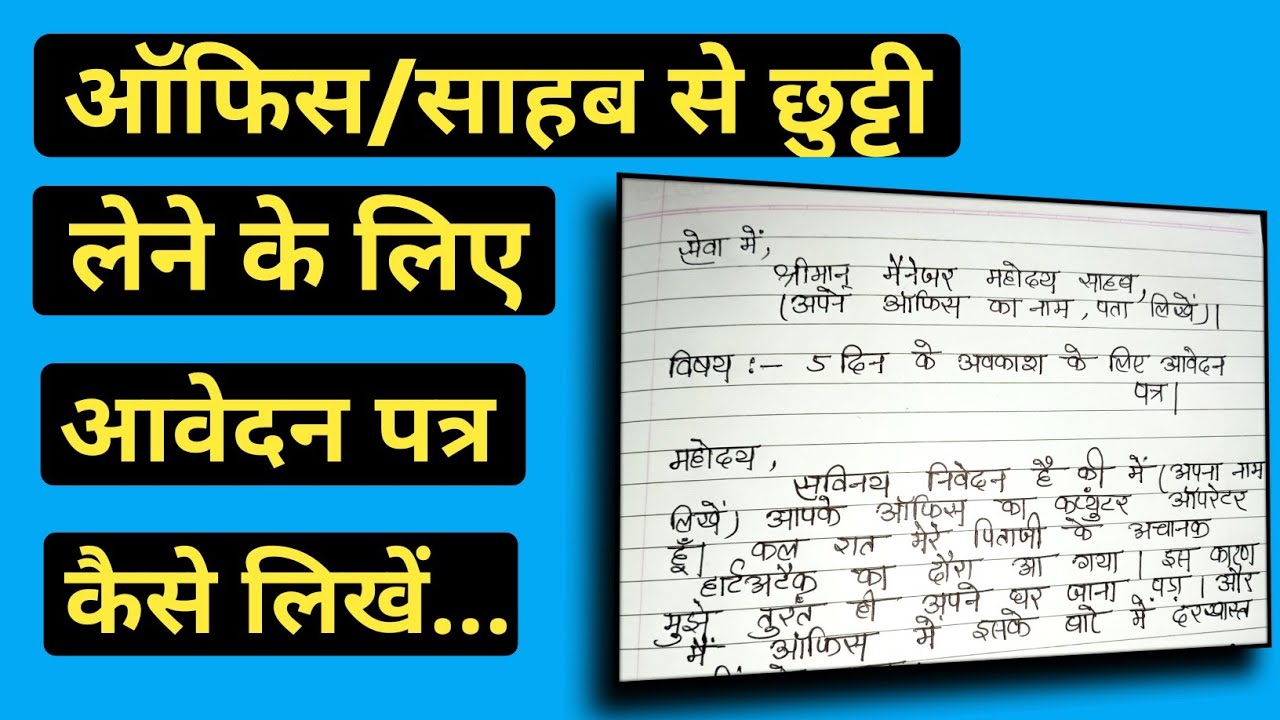 ऑफिस/साहब से छुट्टी
लेने के लिए
आवेदन पत्र
कैसे लिखें...
सेवा में,
श्रीमान् मैनेजर महोदय साहब,
(अपने ऑफिस का नाम, पता लिखें)।
विषय :- 5 दिन के अवकाश के लिए आवेदन
पत्र।
महोदय,
सविनय निवेदन है की में (अपना नाम
लिखें) आपके ऑफिस का कम्प्युंटर ऑपरेटर
हूँ। कल रात मेरे पिताजी के अचानक
हार्टअटैक का दौरा आ गया। इस कारण
मुझे तुरंत ही अपने घर जाना पड़ा। और
मैं ऑफिस में इसके बारे में दरख्यास्त